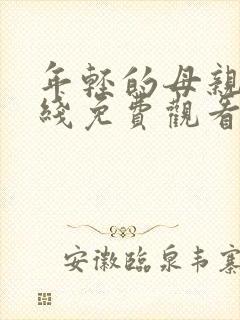 年轻的母親
綫免費觀看
安徽臨泉韦寨